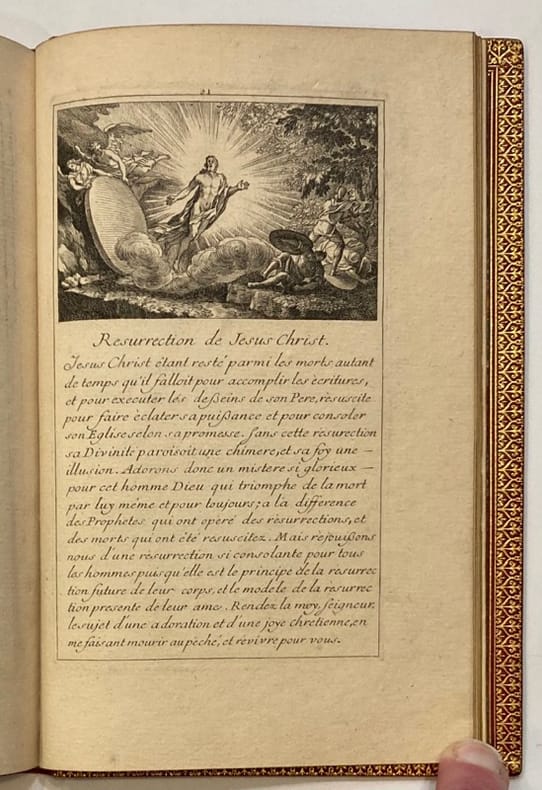 21
Resurrection de Jesus Christ.
Jesus Christ étant resté parmi les morts autant
de temps qu'il falloit pour accomplir les écritures,
et pour executer les deßeins de son Pere, résuscite
pour faire éclater sa puißance et pour consoler
son Eglise selon sa promesse. Sans cette résurection
sa Divinité paroisoit une chimere, et sa foy une —
illusion. Adorons donc un mistere si glorieux —
pour cet homme Dieu qui triomphe de la mort
par luy même et pour toujours; a la différence
des Prophetes qui ont operé des résurrections, et
des morts qui ont été resuscitez. Mais réjouißons
nous d'une résurrection si consolante pour tous
les hommes puisqu'elle est le principe de la résurrec
tion future de leur corps, et le modele de la résurrec
tion presente de leur ame. Rendez la moy, Seigneur,
le sujet d'une adoration et d'une joye chrétienne, en
me faisant mourir au péché, et revivre pour vous.